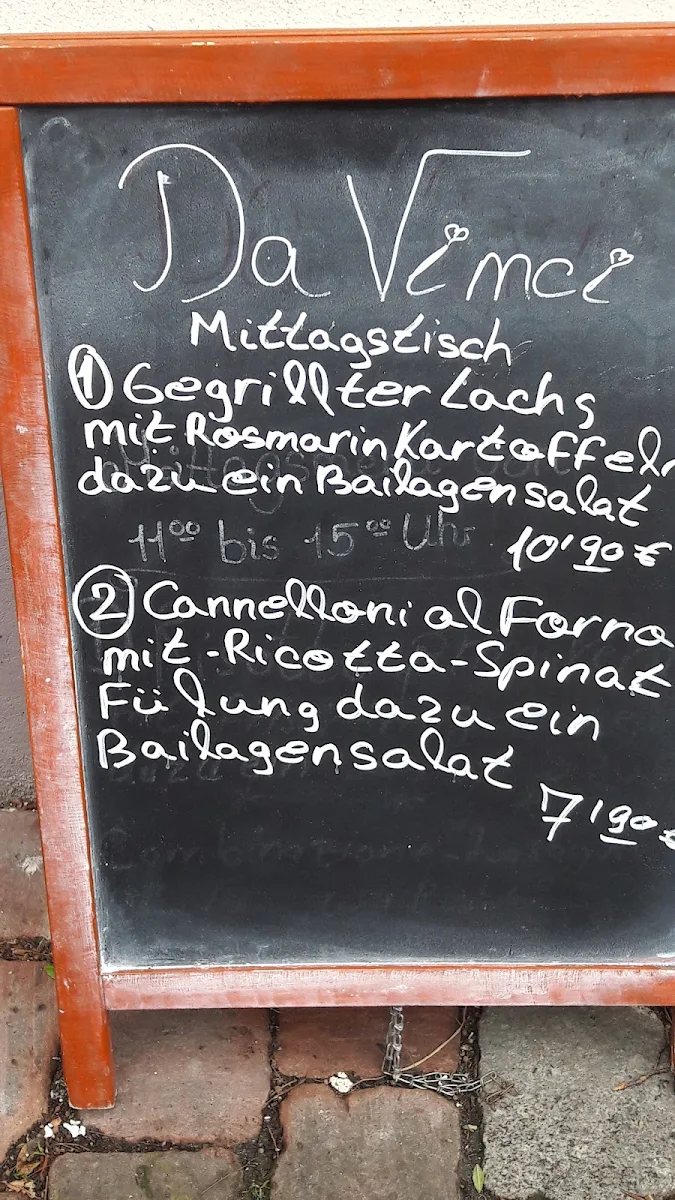 Da Vinci
Mittagstisch
① Gegrillter Lachs
mit Rosmarin Kartoffeln
dazu ein Bailagensalat
11⁰⁰ bis 15⁰⁰ Uhr
10'90 €
② Cannelloni al Forno
mit-Ricotta-Spinat
Fülung dazu ein
Bailagensalat
7'90 €